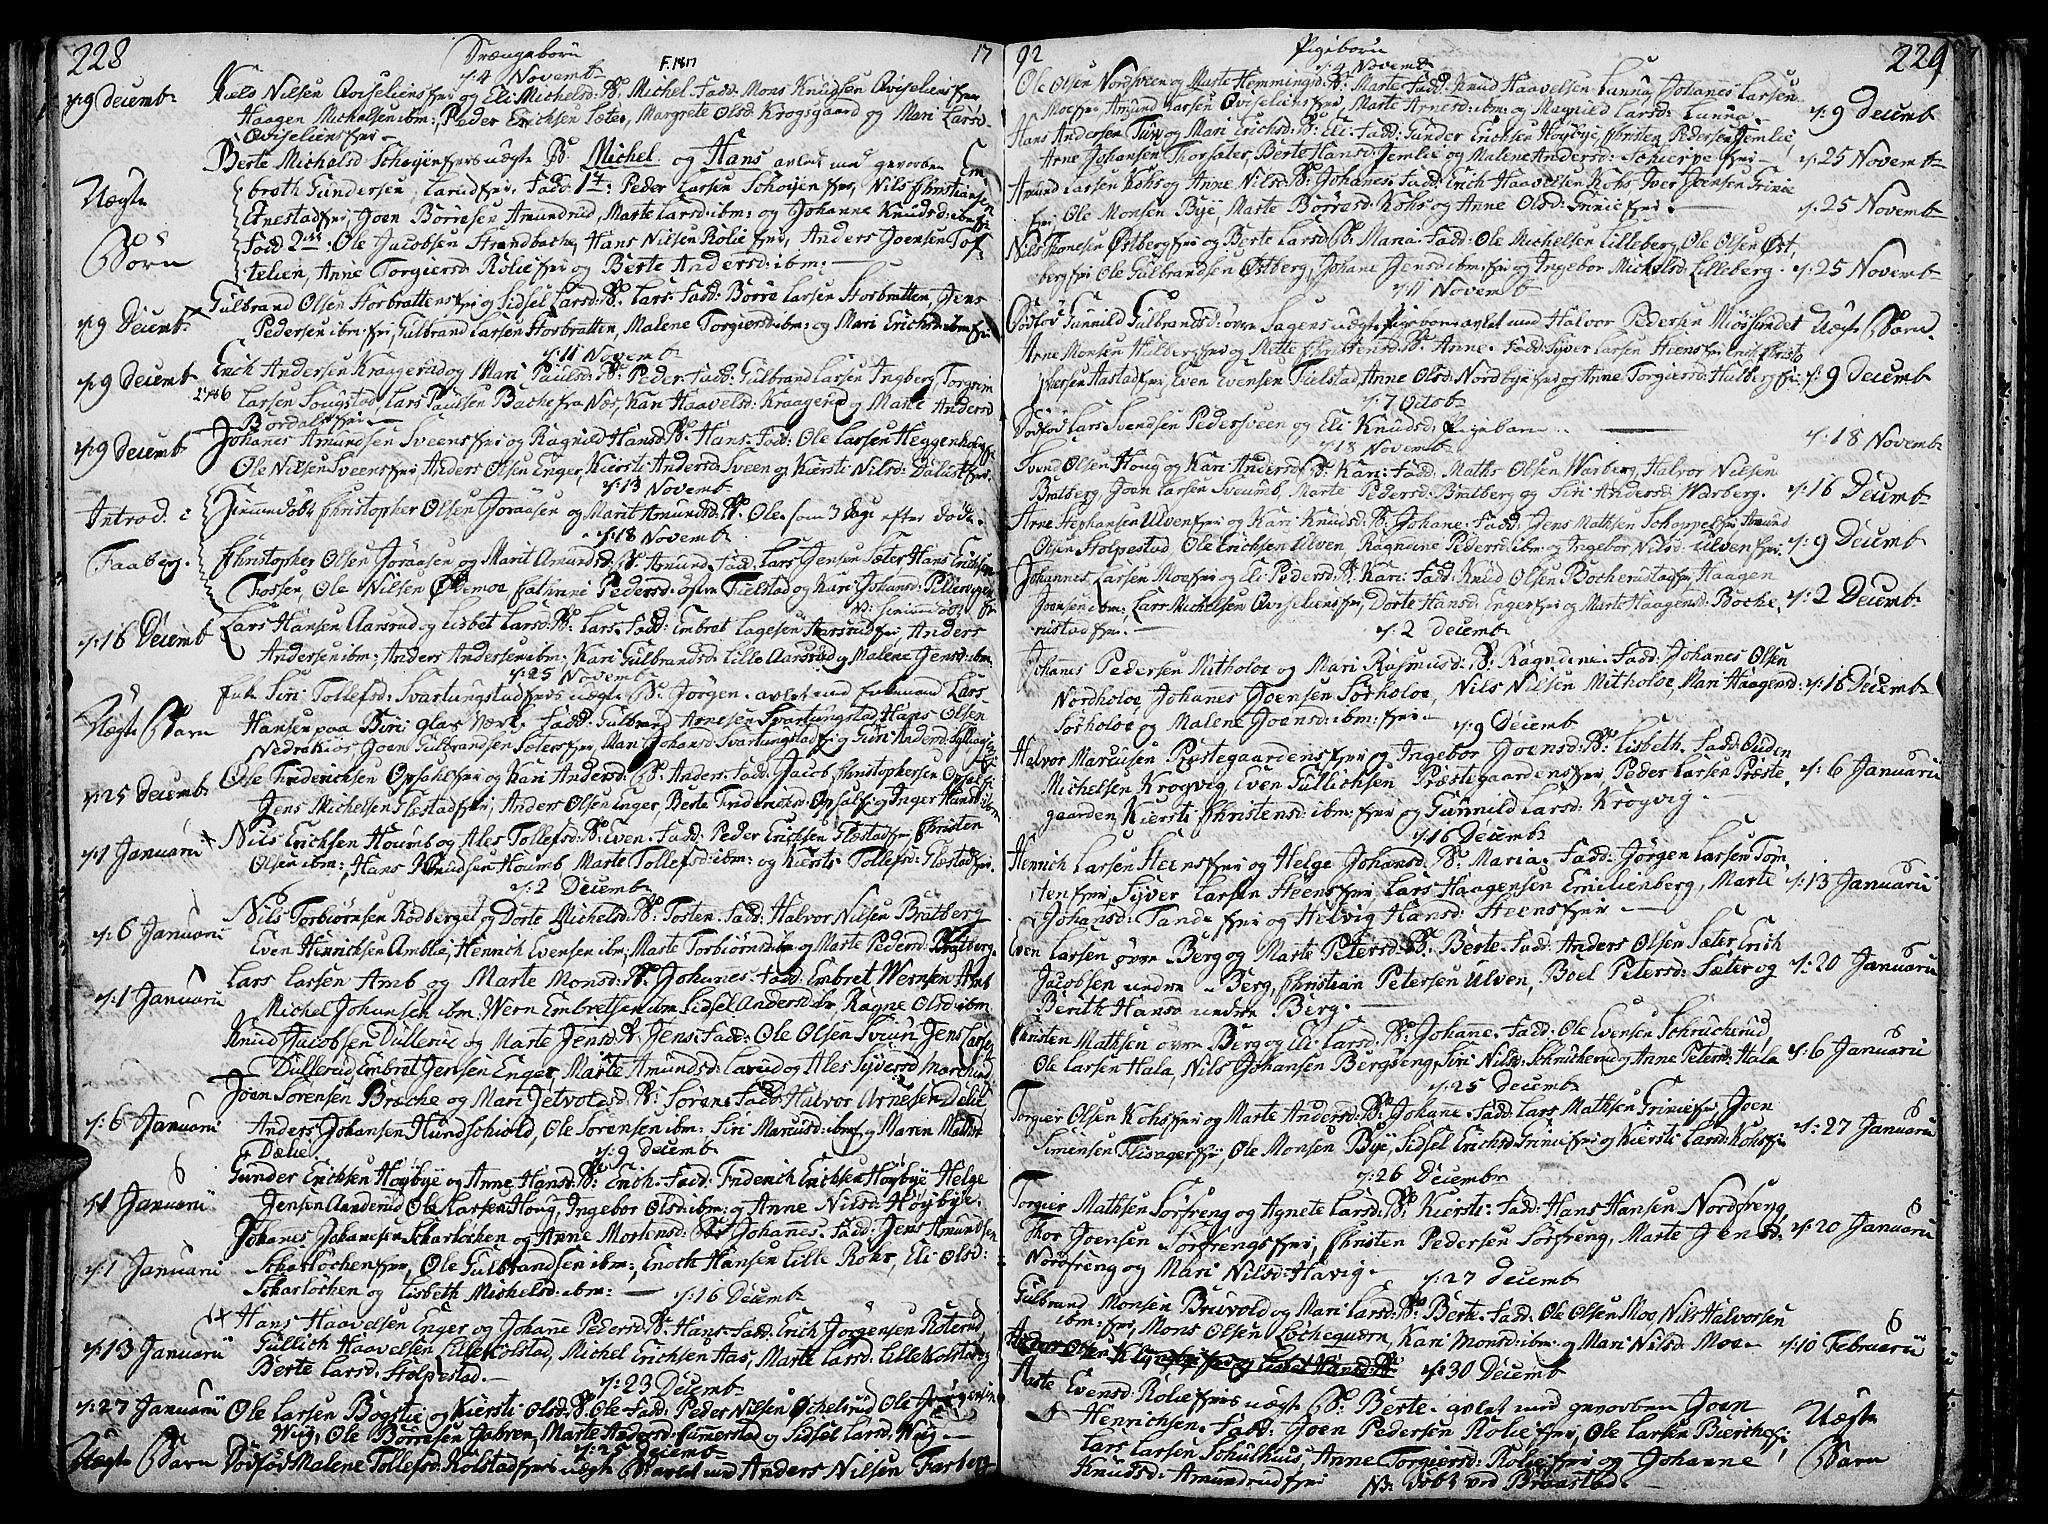 228
Drængebørn
17
F. 1817
d: 4 Novemb
d: 9 decemb
Kield Nilsen Qviseliens fri og Eli Michelsd: B: Michel. Fadd: Mons Knudsen Qviseliens fri
Haagen Michelsen ibm:, Peder Erichsen Sæter, Margrete Olsd: Krogsgaard og Mari Larsd:
Qviseliens fri
Berte Michelsd Schøyens fris uægte B: Michel og Hans avlet med gevorben Em
Uægte
broth Gundersen, Larud fri. Fadd 1te: Peder Larsen Schøyen fri, Nils Christiansen
Enestad fri, Joen Børresen Amundrud, Marte Larsd: ibm: og Johanne Knudsd: ibm
Børn
Fadd 2den: Ole Jacobsen Strandbache, Hans Nilsen Rolie fri, Anders Joensen Tof
telien, Anne Torgiersd: Rolie fri og Berte Andersd: ibm:
d: 9 Decemb
Gulbrand Olsen Storbrattens fri og Sidsel Larsd: B: Lars. Fadd: Børre Larsen Storbratten, Jens
Pedersen ibm: fri, Gulbrand Larsen Storbratten, Malene Torgiersd: ibm: og Mari Erichsd: ibm fri
d: 11 Novemb
d: 9 Decemb
Erich Andersen Kraggerud og Mari Paulsd: B: Peder. Fadd: Gulbrand Larsen Ingberg, Torgrim
Larsen Sougstad, Lars Paulsen Bache fra Næs, Kari Haavelsd: Kraagerud og Marte Andersd
Bordals fri
d: 9 Decemb
Johanes Amundsen Sveens fri og Ragnild Hansd: B: Hans. Fadd: Ole Larsen Heggenhougs
Ole Nilsen Sveens fri, Anders Olsen Enger, Kiersti Andersd: Sveen og Kiersti Nilsd: Dalins fri
d: 13 Novemb
Introd. i
Simendobt Christopher Olsen Joraasen og Marit Amundsd: B: Ole, som 3 dage efter døde.
d: 18 Novemb
Faaberg.
Christopher Olsen Joraasen og Marit Amundsd: B: Amund. Fadd: Lars Jensen Sæter, Hans Erichsen
Fossen, Ole Nilsen Øremoe, Cathrine Pedersd: østen Fielstad og Kari Johansd: Pellerigen
d: 16 Decemb
Lars Hansen Aarsrud og Lisbet Larsd: B: Lars. Fadd: Embret Lagesen Aarsrud fri, Anders
Andersen ibm:, Anders Andersen ibm:, Kari Gulbrandsd: Lille Aarsrud og Malene Jensd: ibm.
d: 25 Novemb
Uægte Barn
Siri Tollefsd: Svartungstad fris uægte B: Jørgen avlet med Lars
Hansen paa Biri glas Værk. Fadd: Gulbrand Arnesen Svartungstad, Hans Olsen
Nedrekiøs, Joen Gulbrandsen Sæters fri, Mari Johansd: Svartungstad fri og Guri Andersd:
d: 25 Decemb
Ole Friderichsen Opsahl fri og Kari Andersd: B: Anders. Fadd: Jacob Christophersen Opsal
Jens Michelsen Glæstad fri, Anders Olsen Enger, Berte Friderichsd: Opsal fri og Inger Hansd: ibm
d: 1 Januarii
Nils Erichsen Houmb og Ales Tollefsd: B: Even. Fadd: Peder Erichsen Glæstad fri, Christen
Olsen ibm:, Hans Knudsen Houmb, Marte Tollefsd: ibm: og Kiersti Tollefsd: Glæstad fri.
d: 2 Decemb
d: 6 Januarii
Nils Torbiørnsen Rødberget og Dorte Michelsd: B: Tosten. Fadd: Halvor Nilsen Bratberg
Even Henrichsen Amblie, Henrich Evensen ibm, Marte Torbiørnsd: ibm og Marte Pedersd: Bratberg.
d: 1 Januarii
Lars Larsen Amb og Marte Monsd: B: Johanes. Fadd: Embret Wernsen Amb
Michel Johansen ibm, Wern Embretsen ibm, Sidsel Andersd: ibm Ragne Olsd: ibm
Knud Jacobsen Dullerud og Marte Jensd: B: Jens. Fadd: Ole Olsen Sveum Jens Larsen
Dullerud, Embret Jensen Enger, Marte Amundsd: Larud og Ales Syversd
d: 6 Januarii
Joen Sørensen Bræche og Mari Jetvoldsd: B: Søren. Fadd: Halvor Arnesen Delie
Anders Johansen Hundschvold, Ole Sørensen ibm: Siri Marcusd: ibm og Maren Mathsd:
Dælie
d: 9 Decemb
d: 1 Januarii
Gunder Erichsen Høybye og Anne Hansd: B: Erich. Fadd: Friderich Erichsen Høybye, Helge
Jensen Aanderud, Ole Larsen Houg, Ingebor Olsd: ibm: og Anne Nilsd: Høybye.
d: 1 Januarii
Johanes Johanesen Scharløchen og Anne Mortensd: B: Johannes. Fadd: Jens Amundsen
Scharløchen fri, Ole Gulbrandsen ibm:, Enoch Hansen Lille Rohr, Eli Olsd:
Scharløchen og Lisbeth Michelsd: ibm:
d: 16 Decemb
d: 13 Januarii
Hans Haavelsen Enger og Johanne Pedersd: B: Hans. Fadd: Erich Jørgensen Roterud
Gullich Haavelsen Lille Kolstad, Michel Erichsen Aas, Marte Larsd: Lille Kolstad og
Berte Larsd: Stolpestad.
d: 23 Decemb
d: 27 Januarii
Ole Larsen Bogstie og Kiersti Olsd: B: Ole. Fadd: Peder Nilsen Øchelsrud, Ole
Wiig, Ole Børresen Jøbren, Marte Andersd: Simerstad og Sidsel Larsd: Wiig.
d: 25 Decemb
Uægte Barn
Dødfød Malene Tollefsd: Rolstad fris uægte B: avlet med Anders Nilsen Farberg
92
Pigebørn
229
d: 4 Novemb
Ole Olsen Nordsveen og Marte Hemmingsd: B: Marte. Fadd: Knud Haavelsen Lunna, Johanes Larsen
Moe fri, Amund Larsen Qviseliens fri, Marte Arnesd: ibm: og Magnild Larsd: Lunna
d: 9 Decemb
Hans Andersen Furu og Mari Erichsd: B: Eli. Fadd: Gunder Erichsen Høybye, Christen Pedersen Jemlie,
Arne Johansen Thorsæter, Berte Hansd: Jemlie og Malene Andersd: Schierpe fri
d: 25 Novemb
Amund Larsen Kohs og Anne Nilsd: B: Johanes. Fadd: Erich Haavelsen Kohs, Iver Joensen Grinie
fri, Ole Monsen Bye, Marte Børresd: Kohs og Anne Olsd: Grinie fri.
d: 25 Novemb
Nils Thomesen Østberg fri og Berte Larsd: B: Maria. Fadd: Ole Michelsen Lilleberg, Ole Olsen Øst,
berg fri, Ole Gulbrandsen Østberg, Johane Jensd: ibm: fri og Ingebor Michelsd: Lilleberg.
d: 25 Novemb
d: 11 Novemb
Dødfød Gunnild Gulbrandsd: øvre Sagens uægte Pigebarn avlet med Halvor Pedersen Miøsundet
Uægte Barn.
Arne Monsen Hulberg fri og Mette Christensd: B: Anne. Fadd: Syver Larsen Heens fri, Erich Christo
phersen Aastad fri, Even Evensen Fielstad, Anne Olsd: Nordbye fri og Anne Torgiersd: Hulberg fri
d: 9 Decemb
d: 7 Octob
Dødfød Lars Svendsen Pedersveen og Eli Knudsd: Pigebarn.
d: 18 Novemb
d: 18 Novemb
Svend Olsen Houg og Kari Andersd: B: Kari. Fadd: Maths Olsen Warberg, Halvor Nilsen
Bratberg, Joen Larsen Sveumb, Marte Pedersd: Bratberg og Siri Andersd: Warberg.
d: 16 Decemb
Arne Stephansen Ulven fri og Kari Knudsd: B: Johane. Fadd: Jens Mathsen Schappel fri, Amund
Olsen Stolpestad, Ole Erichsen Ulven, Ragndine Pedersd: ibm: og Ingebor Nilsd: Ulven fri.
d: 9 Decemb
Johannes Larsen Moe fri og Eli Pedersd: B: Kari. Fadd: Knud Olsen Bocherustad fri, Haagen
Joensen ibm:, Lars Michelsen Qviseliens fri, Dorte Hansd: Enger fri og Marte Haagensd: Boche,
rustad fri.
d: 2 Decemb
d: 2 Decemb
Johanes Pedersen Mitholoe og Mari Rasmusd: B: Ragndine. Fadd: Johanes Olsen
Nordholoe, Johannes Joensen Sørholoe, Nils Nilsen Mitholoe, Mari Haagensd:
Sørholoe og Malene Joensd: ibm: fri
d: 16 Decemb
d: 9 Decemb
Halvor Marcusen Præstegaardens fri og Ingebor Joensd: B: Lisbeth. Fadd: Ouden
Michelsen Krogvig, Even Gullichsen Præstegaardens fri, Peder Larsen Præste,
gaarden, Kiersti Christensd: ibm: fri og Gunnild Larsd: Krogvig
d: 6 Januarii
d: 16 Decemb
Henrich Larsen Heens fri og Helge Johansd: B: Maria. Fadd: Jørgen Larsen Tøm
ten fri, Syver Larsen Heens fri, Lars Haagensen Emilienberg, Marte
Johansd: Tande fri og Helvig Hansd: Heens fri
d: 13 Januarii
Even Larsen øvre Berg og Marte Petersd: B: Berte. Fadd: Anders Olsen Sæter, Erich
Jacobsen nedre Berg, Christian Petersen Ulven, Boel Petersd: Sæter og
Berith Hansd: nedre Berg.
d: 20 Januarii
Christen Mathsen øvre Berg og Eli Larsd: B: Johane. Fadd: Ole Evensen Schrucherud,
Ole Larsen Hala, Nils Johansen Bergseng, Siri Nilsd: Schrucherud og Anne Petersd: Hala
d: 6 Januarii
d: 25 Decemb
Torgier Olsen Kohs fri og Marte Andersd: B: Johanne. Fadd: Lars Mathsen Grinie fri, Joen
Simensen Flisager fri, Ole Monsen Bye, Sidsel Erichsd: Grinie fri og Kiersti Larsd: Kohs fri
d: 27 Januarii
d: 26 Decemb
Torgier Mathsen Sørfreng og Agnete Larsd: B: Kiersti. Fadd: Hans Hansen Nordfreng,
Thor Joensen Sørfrengs fri, Christen Pedersen Sørfreng, Marte Jensd:
Nordfreng og Mari Nilsd: Havig.
d: 20 Januarii
d: 27 Decemb
Gulbrand Monsen Bruvold og Mari Larsd: B: Berte. Fadd: Ole Olsen Moe, Nils Halvorsen
ibm: fri, Mons Olsen Løchequærn, Kari Monsd: ibm: og Mari Nilsd: Moe
d: 10 Februarii
d: 30 Decemb
Marte Evensd: Rolie fris uægte B: Berte. avlet med gevorben Joen
Henrichsen. Fadd: Joen Pedersen Rolie fri, Ole Larsen Bierche fri
Lars Larsen Schulhuus, Anne Torgiersd: Rolie fri og Johanne
Knudsd: Amundrud fri
Uægte
Barn
NB: døbt ved Braastad.